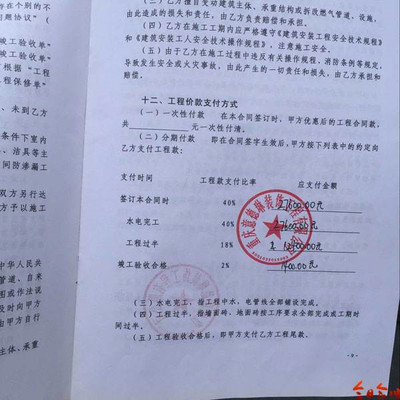 存在个别的不
问题协议”（
竣工验收单”
工验收单”
根据“工程
程保修单”
未到乙方
条件下室内
、洁具等主
间防渗漏工
双方另行达
方予以施工
中华人民共
管道、自来
图或作法说
及时向甲方
由甲方自行
主体、承重
（三）乙方擅自变动建筑主体、承重结构或拆改燃气管道、设施，
由此造成的损失和责任，由乙方负责赔偿和承担。
（四）乙方在施工工期内应严格遵守《建筑安装工程安全技术规程》
和《建筑安装工人安全技术操作规程》，注意施工安全。
（五）由于乙方在施工过程中违反有关操作规程、消防条例等规定，
导致发生安全或火灾事故，由此产生的一切责任和损失，由乙方承担
赔偿。
十二、工程价款支付方式
（一）一次性付款 在本合同签订时，甲方优惠后的工程合同款，
共 元一次性付清。
（二）分期付款 即在合同签字生效后，甲方按下列表中的约定向
乙方支付工程款：
支付时间 工程款支付比率 应支付金额
签订本合同时 40% 27600.00元
水电完工 40% 27600.00元
工程过半 18% 12400.00元
竣工验收合格 2% 1400.00元
（三）水电完工，指工程中水、电管线全部铺设完成。
（四）工程过半，指墙面砖、地面砖按工序要求全部完成或工期时
间过半。
（五）工程验收合格后，即甲方支付乙方工程尾款。